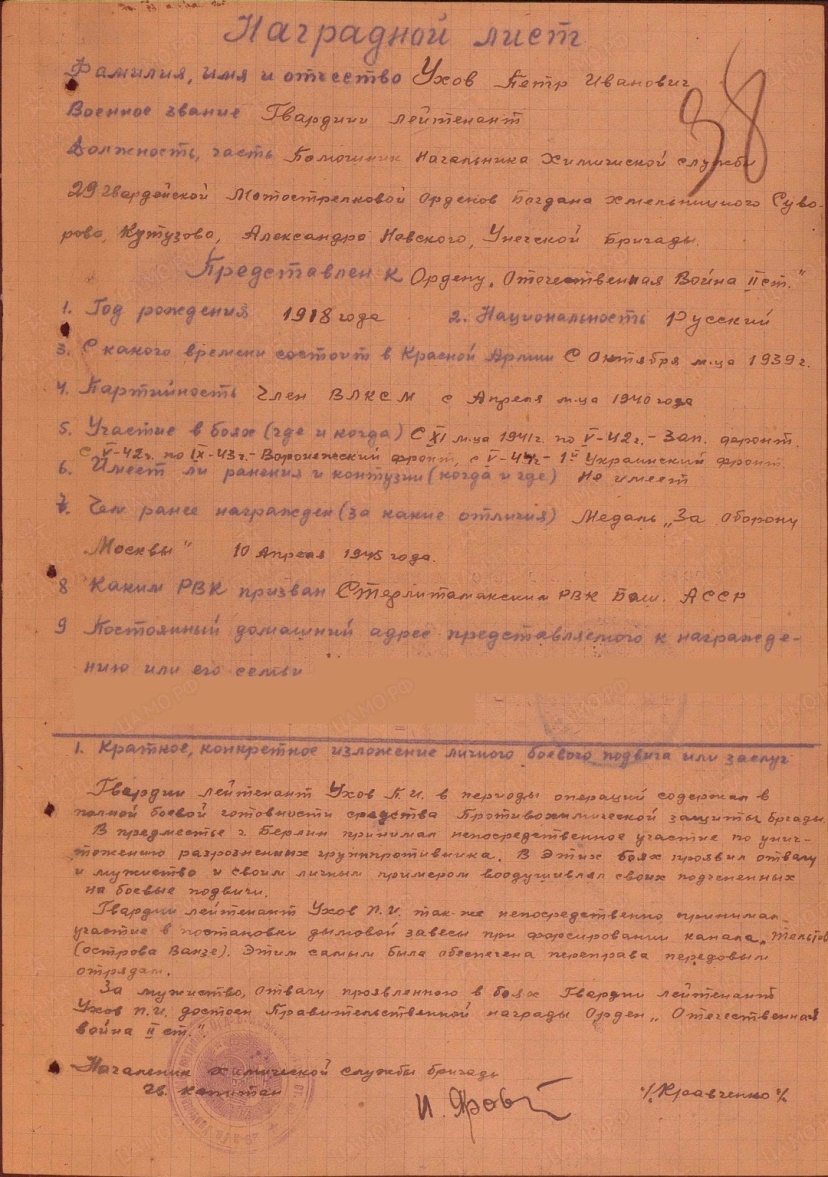 Наградной лист
38
Фамилия, имя и отчество Ухов Петр Иванович
Военное звание Гвардии лейтенант
Должность, часть Помошник Начальника Химической службы
29 гвардейской Мотострелковой Орденов Богдана Хмельницкого Суво-
рова, Кутузова, Александра Невского, Унечской Бригады.
Представлен к Ордену „Отечественная Война II ст."
1. Год рождения 1918 года 2. Национальность Русский
3. С какого времени состоит в Красной Армии С Октября м-ца 1939 г.
4. Партийность Член ВЛКСМ с Апреля м-ца 1940 года
5. Участие в боях (где и когда) С XI м-ца 1941г. по V-42г.- Зап. фронт.
с V-42г. по IX-43г.- Воронежский фронт, с V-44г- 1й Украинский фронт
6. Имеет ли ранения и контузии (когда и где) Не имеет
7. Чем ранее награжден (за какие отличия) Медаль „За оборону
Москвы" 10 Апреля 1945 года.
8 Каким РВК призван Стерлитамакским РВК Баш. АССР
9 Постоянный домашний адрес представляемого к награжде-
нию или его семьи
1. Краткое, конкретное изложение личного боевого подвига или заслуг
Гвардии лейтенант Ухов П.И. в периоды операций содержал в
полной боевой готовности средства Противохимической защиты бригады.
В предместье г. Берлин принимал непосредственное участие по унич-
тожению разрозненных групппротивника. В этих боях проявил отвагу
и мужество и своим личным примером воодушивлял своих подчененных
на боевые подвиги.
Гвардии лейтенант Ухов П.И. так-же непосредственно принимал
участие в постановки дымовой завесы при форсировании канала „Тельтов
(острова Ванзе). Этим самым была обеспечена переправа передовым
отрядам.
За мужиство, отвагу проявленного в боях Гвардии лейтенант
Ухов П.И. достоен Правительственной награды Орден „Отечественная
война II ст."
Начальник химической службы бригады
гв. капитан /Кравченко/